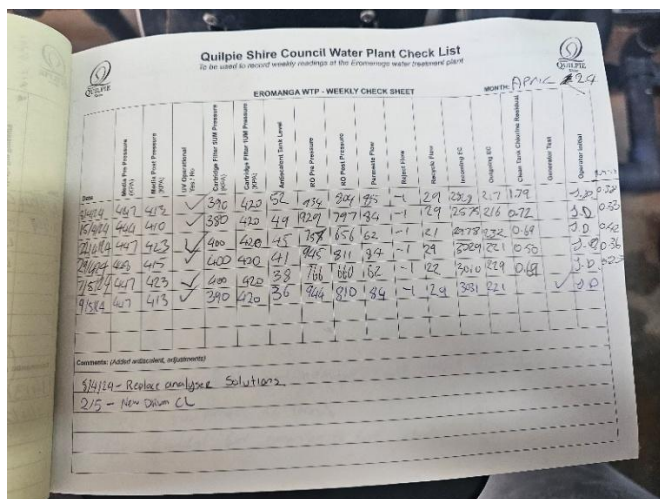 QUILPIE
Quilpie Shire Council Water Plant Check List
To be used to record weekly readings at the Eromanga water treatment plant
QUILPIE
EROMANGA WTP - WEEKLY CHECK SHEET
MONTH: APRIL 24
Date
Media Pre Pressure (KPA)
Media Post Pressure (KPA)
UV Operational Yes / No
Cartridge Filter 5UM Pressure (KPA)
Cartridge Filter 1UM Pressure (KPA)
Antiscalent Tank Level
RO Pre Pressure
RO Post Pressure
Permeate Flow
Reject Flow
Recycle Flow
Incoming EC
Outgoing EC
Clean Tank Chlorine Residual
Generator Test
Operator Initial
447 412 ✓ 390 420 52 804 85 -1 29 217 1.79 J.D
15/4/24 444 410 380 420 49 797 84 -1 29 2575 216 0.72 J.D
447 423 ✓ 400 420 45 656 62 -1 232 0.69 J.D
415 ✓ 400 420 41 945 811 84 -1 29 3029 221 0.50
447 423 ✓ 400 420 38 766 660 62 -1 22 3010 229 0.69 J.D
413 ✓ 390 420 36 944 810 84 -1 29 3031 221 ✓ J.D
Comments: (Added antiscalent, adjustments)
- Replace analyser Solutions
2/5 - New Drum CL